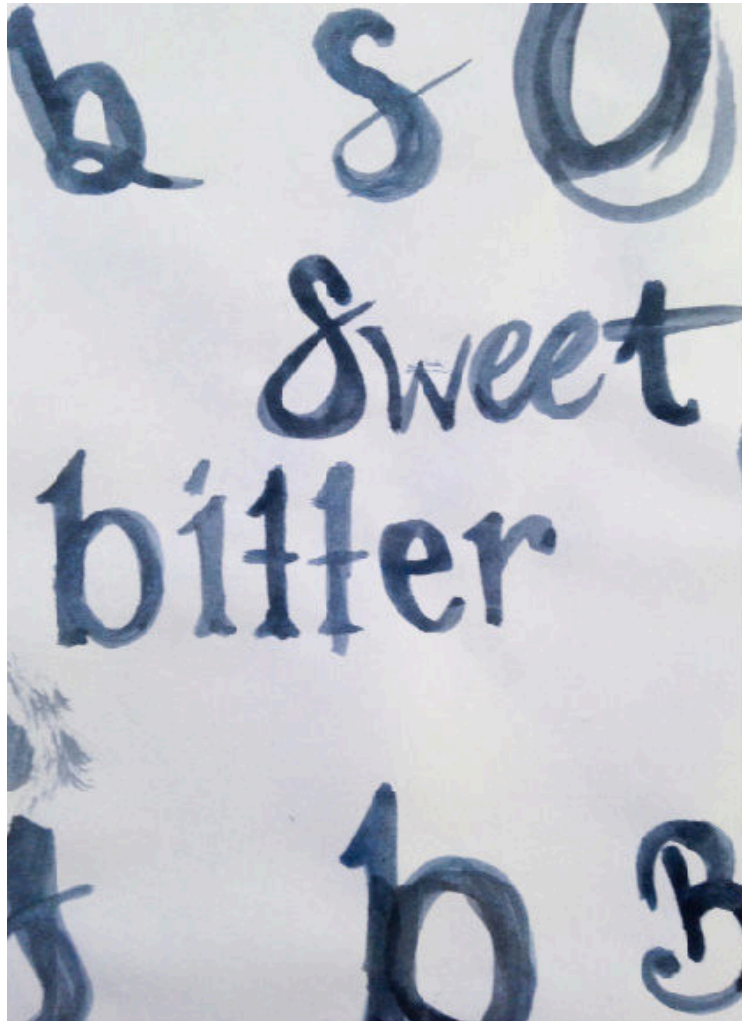 b S O
Sweet
bitter
b B